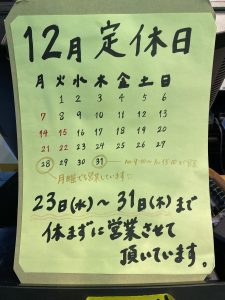 12月定休日
月 火 水 木 金 土 日
1 2 3 4 5 6
7 8 9 10 11 12 13
14 15 16 17 18 19 20
21 22 23 24 25 26 27
28 29 30 31
月曜でも営業しています
23日(水)〜31日(木)まで
休まずに営業させて
頂いています。